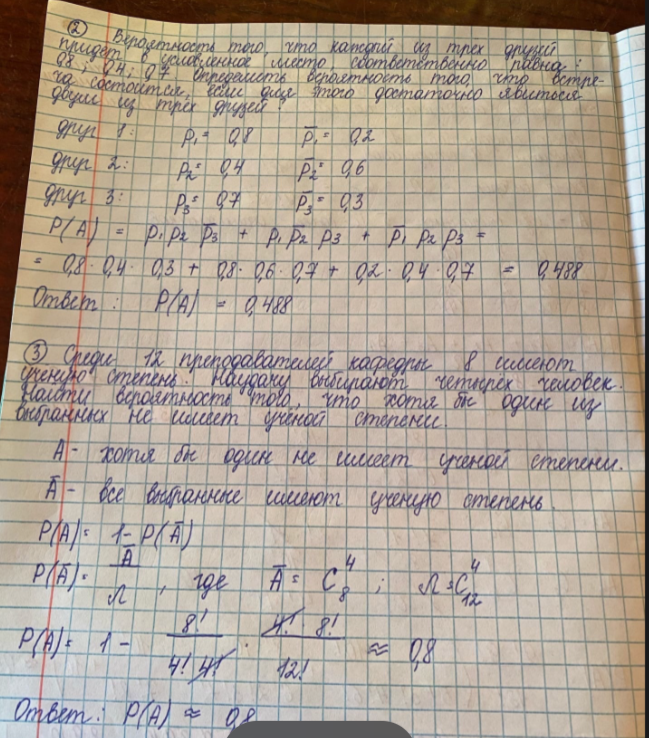 ② Вероятность того, что каждый из трех друзей
придет в условленное место соответственно равна:
0,8; 0,4; 0,7 определить вероятность того, что встре-
ча состоится, если для этого достаточно явиться
двум из трех друзей?
друг 1: p₁ = 0,8 p̅₁ = 0,2
друг 2: p₂ = 0,4 p̅₂ = 0,6
друг 3: p₃ = 0,7 p̅₃ = 0,3
P(A) = p₁ p₂ p̅₃ + p₁ p̅₂ p₃ + p̅₁ p₂ p₃ =
= 0,8 · 0,4 · 0,3 + 0,8 · 0,6 · 0,7 + 0,2 · 0,4 · 0,7 = 0,488
Ответ: P(A) = 0,488
③ Среди 12 преподавателей кафедры 8 имеют
ученую степень. Наудачу выбирают четырех человек.
Найти вероятность того, что хотя бы один из
выбранных не имеет ученой степени.
A - хотя бы один не имеет ученой степени.
A̅ - все выбранные имеют ученую степень.
P(A) = 1 - P(A̅)
P(A̅) = A̅/n, где A̅ = C₈⁴; n = C₁₂⁴
P(A) = 1 - 8!/(4! 4!) · (4! 8!)/12! ≈ 0,8
Ответ: P(A) ≈ 0,8